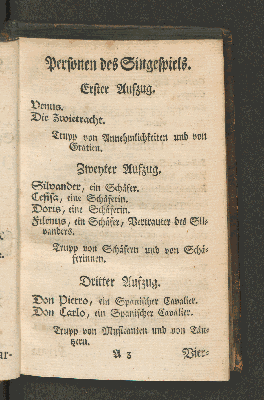 Personen des Singespiels.
Erster Aufzug.
Venus.
Die Zwietracht.
Trupp von Annehmlichkeiten und von
Gratien.
Zweyter Aufzug.
Silvander, ein Schäfer.
Cefisa, eine Schäferin.
Doris, eine Schäferin.
Filenus, ein Schäfer, Vertrauter des Sil-
vanders.
Trupp von Schäfern und von Schä-
ferinnen.
Dritter Aufzug.
Don Pietro, ein Spanischer Cavalier.
Don Carlo, ein Spanischer Cavalier.
Trupp von Musicanten und von Tän-
zern.
A 3 Vier-